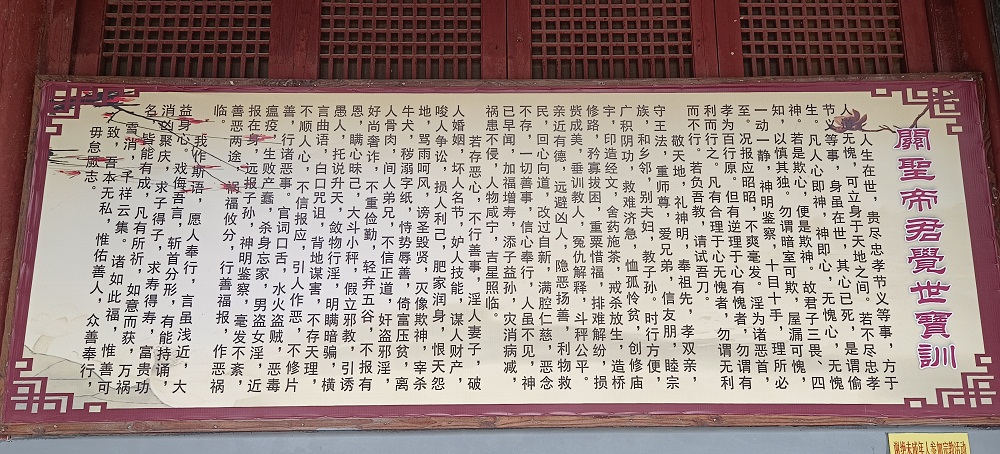 關聖帝君覺世寶訓
人生在世，贵尽忠孝节义等事，方于
人无愧，可立身于天地之间。若不尽忠孝
节义等事，身虽在世，其心已死，是谓偷
生。凡人心即神，神即心，无愧心，无愧
神。若是欺心，便是欺神。故君子三畏、四
知，以慎其独。勿谓暗室可欺，屋漏可愧，
一动一静，神明鉴察，十目十手，理所必
至。况报应昭昭，不爽毫发。淫为诸恶首，
孝为百行原。但有逆理于心有愧者，勿谓有
利而行之。凡有合理于心无愧者，勿谓无利
而不行。若负吾教，请试吾刀。
敬天地，礼神明，奉祖先，孝双亲，
守王法，重师尊，爱兄弟，信友朋，睦宗
族，和乡邻，别夫妇，教子孙。时行方便，
广积阴功，救难济急，恤孤怜贫，创修庙
宇，印造经文，舍药施茶，戒杀放生，造桥
修路，矜寡拔困，重粟惜福，排难解纷，捐
赀成美，垂训教人，冤仇解释，斗秤公平。
亲近有德，远避凶人，隐恶扬善，利物救
民，回心向道，改过自新，满腔仁慈，恶念
不存，一切善事，信心奉行，人虽不见，神
已早闻，加福增寿，添子益孙，灾消病减，
祸患不侵，人物咸宁，吉星照临。
若存恶心，不行善事，淫人妻子，破
人婚姻，坏人名节，妒人技能，谋人财产，
唆人争讼，损人利己，肥家润身，恨天怨
地，骂雨呵风，谤圣毁贤，灭像欺神，宰杀
牛犬，秽溺字纸，恃势辱善，倚富压贫，离
人骨肉，间人弟兄，不信正道，奸盗邪淫，
好尚奢诈，不重俭勤，轻弃五谷，不报有
恩，瞒心昧己，大斗小秤，假立邪教，引诱
愚人，托说升天，敛物行淫，明瞒暗骗，横
言曲语，白口咒诅，背地谋害，不存天理，
不顺人心，不信报应，引人作恶，不修片
善，行诸恶事。官词口舌，水火盗贼，恶毒
瘟疫，生败产蠢，杀身忘家，男盗女淫，近
报在身，远报子孙，神明鉴察，毫发不紊，
善恶两途，祸福攸分，行善福报，作恶祸
临。
我作斯语，愿人奉行，言虽浅近，大
益身心。戏侮吾言，斩首分形，有能持诵，
消凶聚庆，求子得子，求寿得寿，富贵功
名，皆能有成，凡有所祈，如意而获，万祸
雪消，千祥云集。诸如此福，惟善可
致，吾本无私，惟佑善人，众善奉行，
毋怠厥志。
谢绝未成年人参加宗教活动